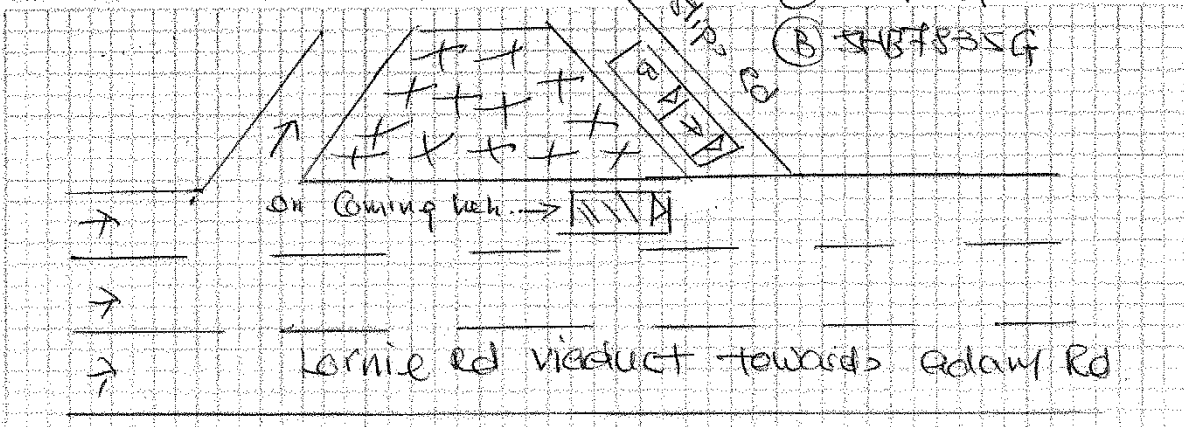 slip rd
(B) SHB7835G
B
A
on Coming veh.
Lornie Rd viaduct towards adam Rd